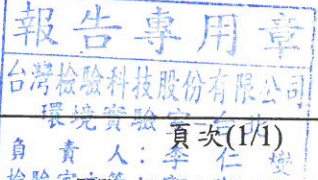 報告專用章
台灣檢驗科技股份有限公司
環境實驗室-台北
頁次(1/1)
負責人:李仁燮